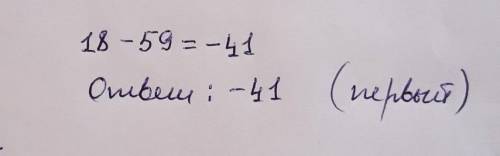 18 - 59 = -41
Ответ: -41 (первый)